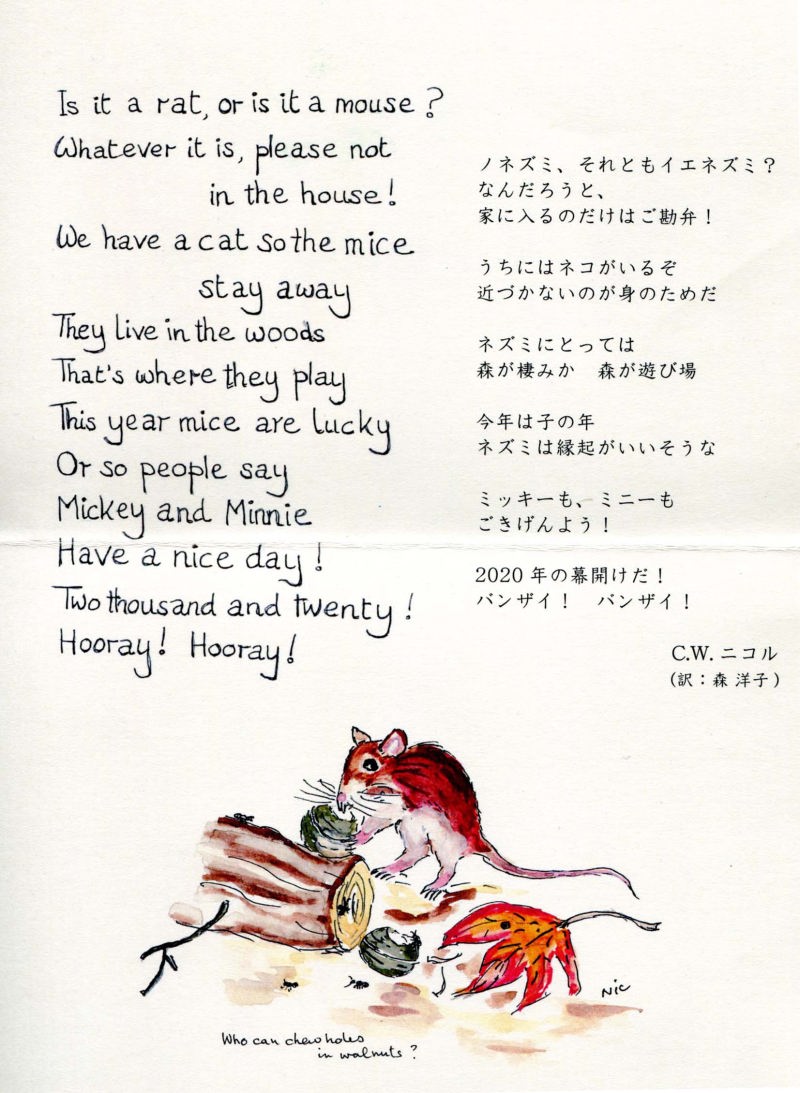 Is it a rat, or is it a mouse?
Whatever it is, please not
in the house!
We have a cat so the mice
stay away
They live in the woods
That's where they play
This year mice are lucky
Or so people say
Mickey and Minnie
Have a nice day!
Two thousand and twenty!
Hooray! Hooray!
ノネズミ、それともイエネズミ？
なんだろうと、
家に入るのだけはご勘弁！
うちにはネコがいるぞ
近づかないのが身のためだ
ネズミにとっては
森が棲みか　森が遊び場
今年は子の年
ネズミは縁起がいいそうな
ミッキーも、ミニーも
ごきげんよう！
2020 年の幕開けだ！
バンザイ！　バンザイ！
C.W. ニコル
(訳：森 洋子)
Nic
Who can chew holes
in walnuts?